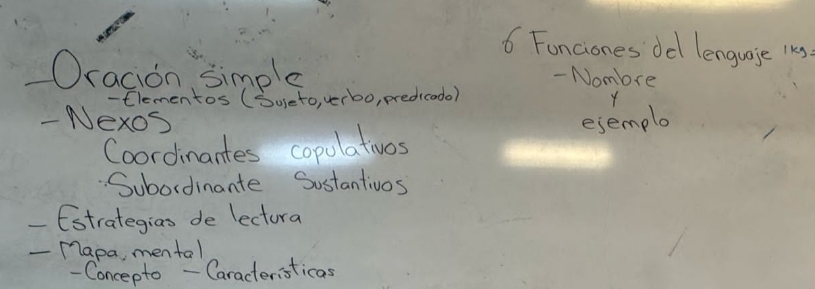 - Oración simple
- Elementos (Sujeto, verbo, predicado)
- Nexos
Coordinantes copulativos
Subordinante Sustantivos
- Estrategias de lectura
- Mapa mental
- Concepto - Características
6 Funciones del lenguaje
- Nombre
y
ejemplo